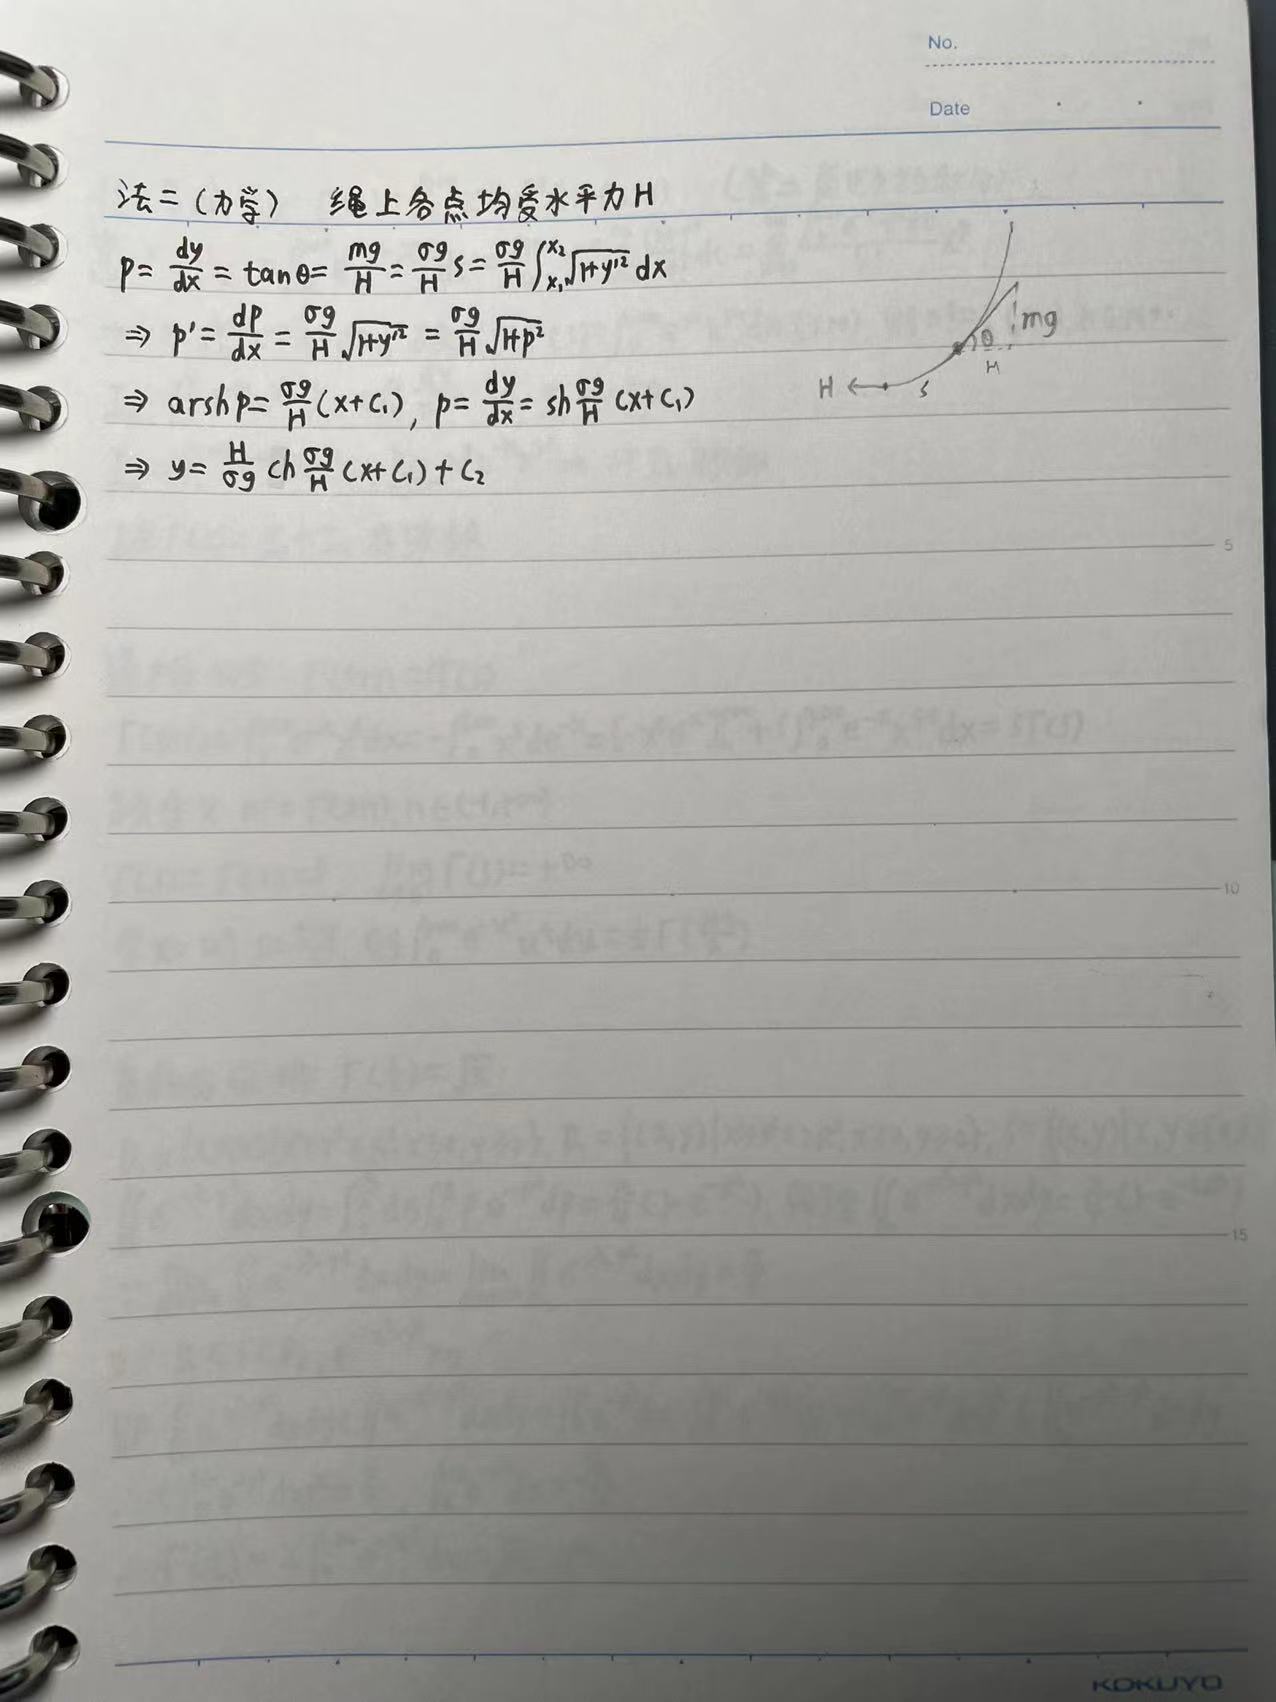 No.
Date
法二(力学) 绳上各点均受水平力H
p= dy/dx = tanθ= mg/H = σg/H s= σg/H ∫_{x₁}^{x₂} √(1+y'²) dx
⇒ p'= dp/dx = σg/H √(1+y'²) = σg/H √(1+p²)
⇒ arsh p= σg/H (x+C₁), p= dy/dx = sh σg/H (x+C₁)
⇒ y= H/σg ch σg/H (x+C₁)+C₂
mg
θ
H
H ← s
5
10
15
KOKUYO